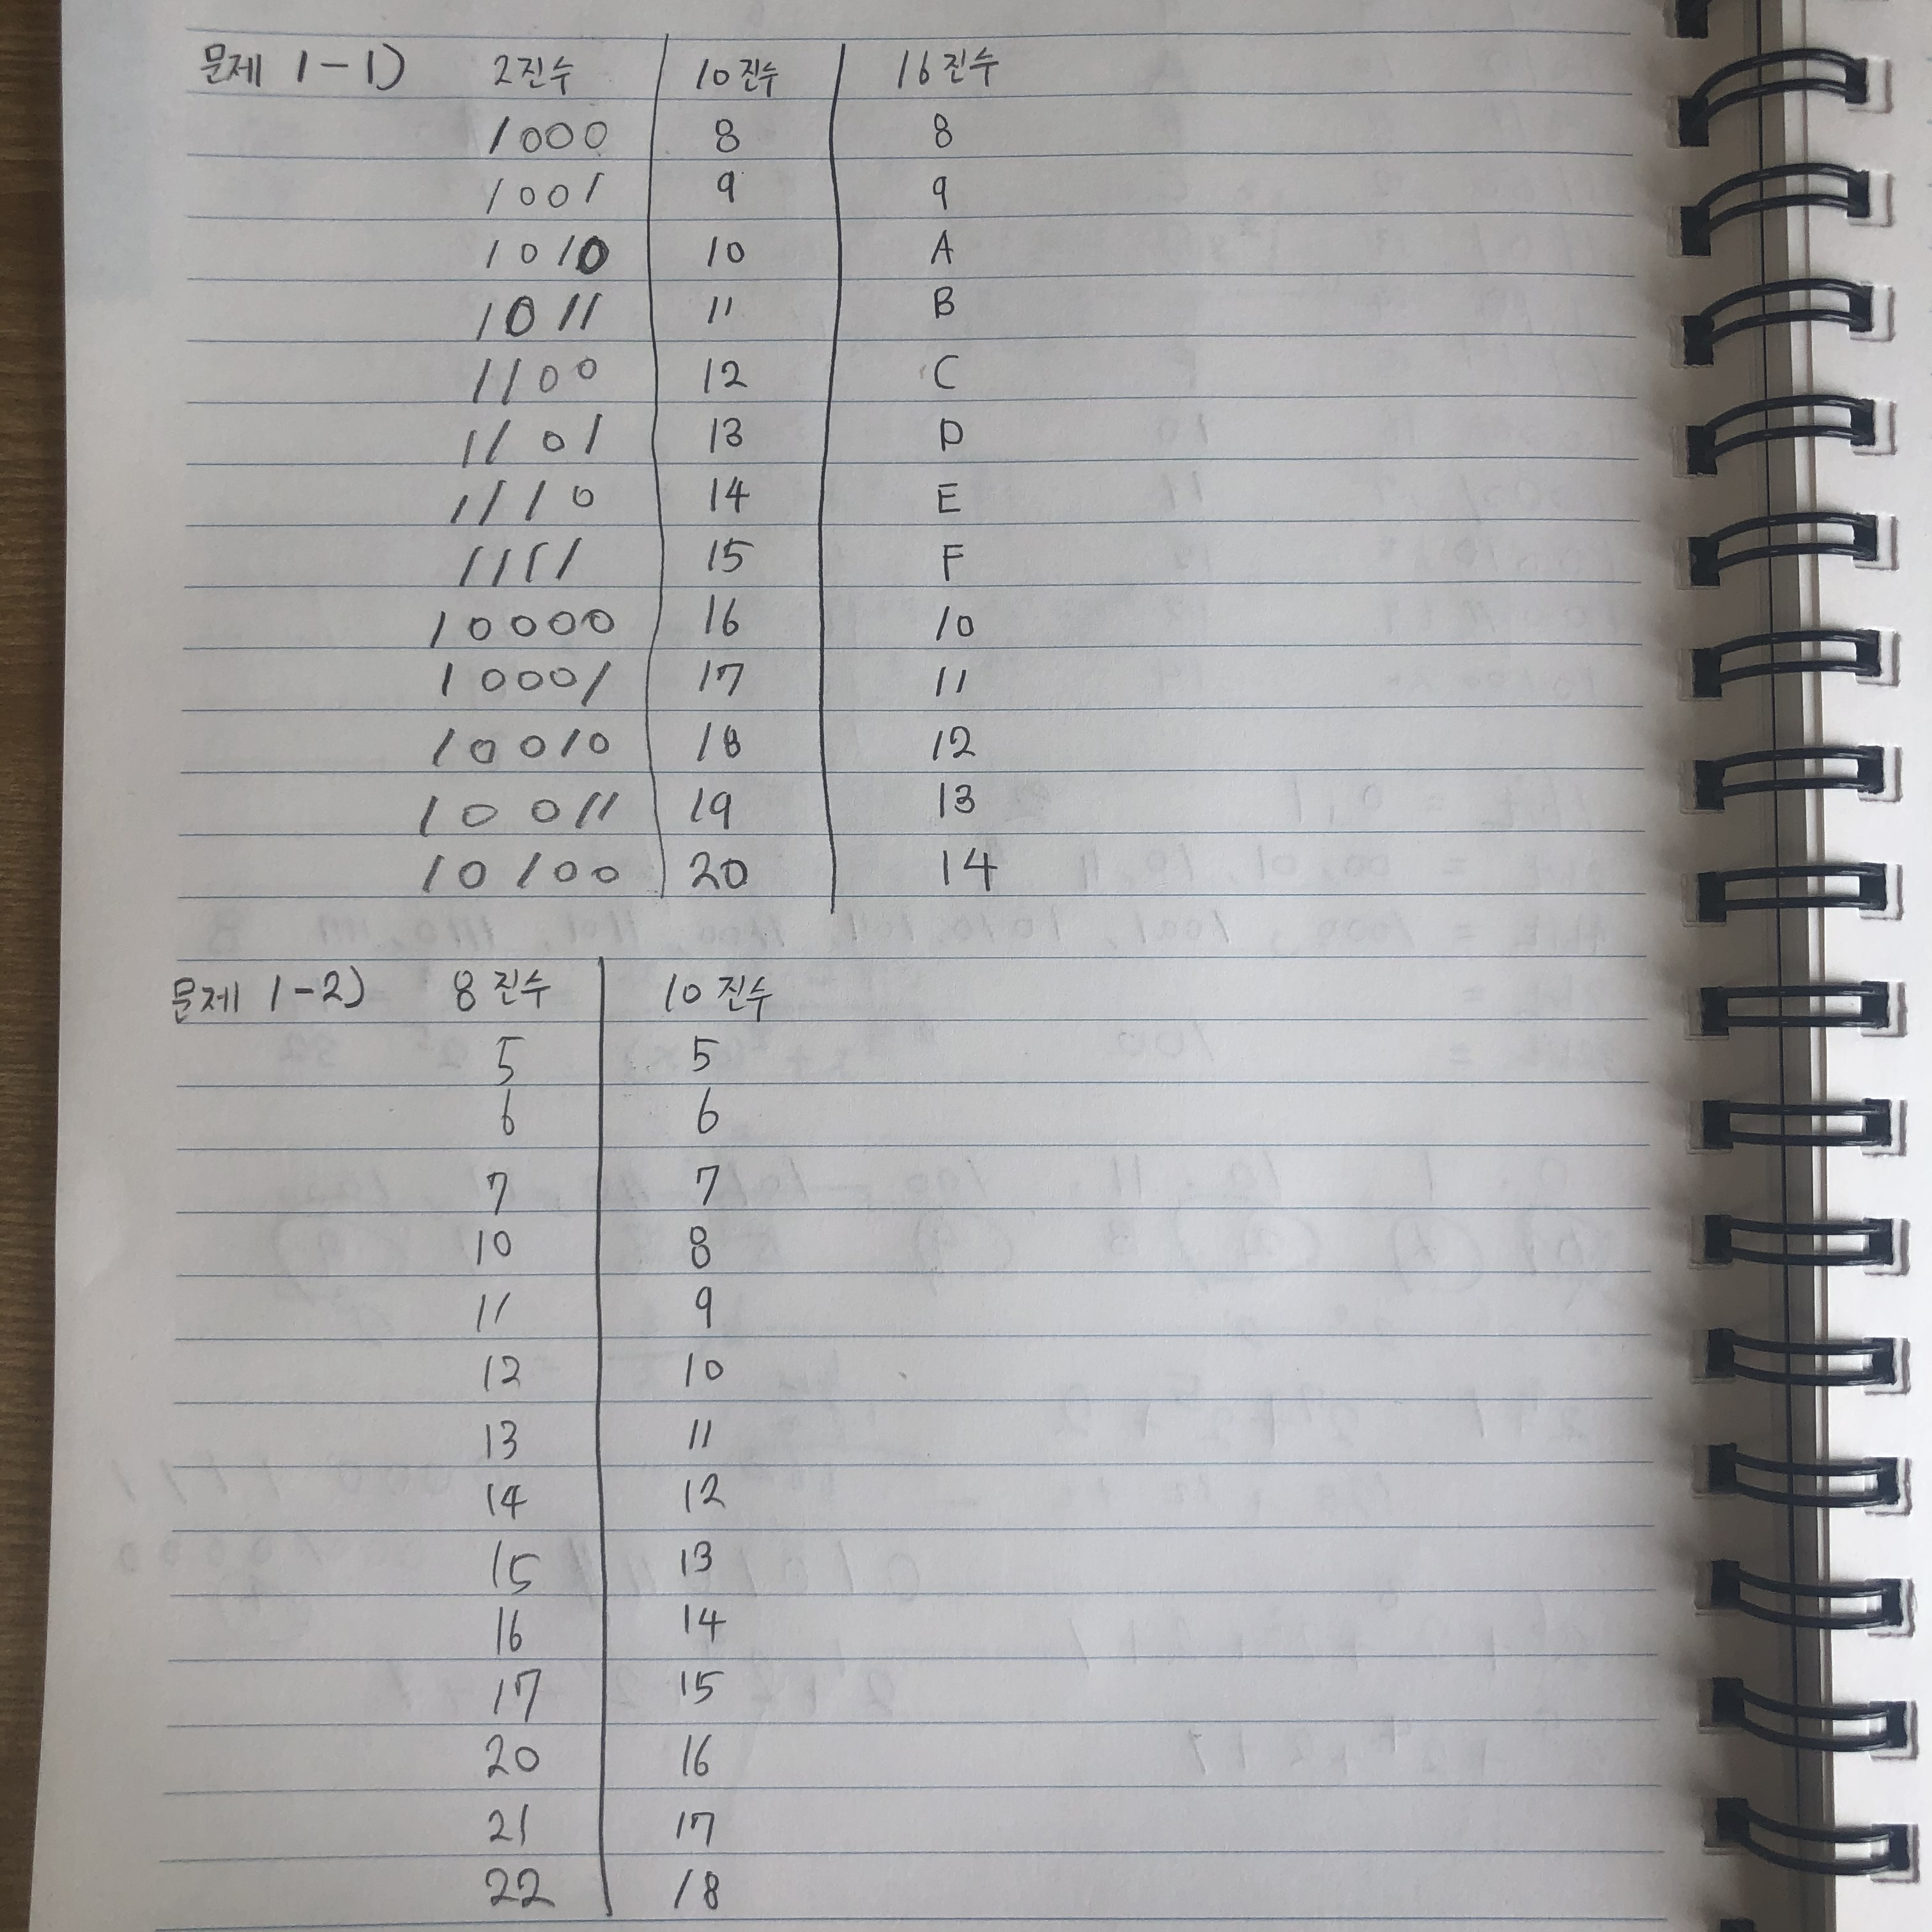 문제 1-1) 2진수 10진수 16진수
1000 8 8
1001 9 9
1010 10 A
1011 11 B
1100 12 C
1101 13 D
1110 14 E
1111 15 F
10000 16 10
10001 17 11
10010 18 12
10011 19 13
10100 20 14
문제 1-2) 8진수 10진수
5 5
6 6
7 7
10 8
11 9
12 10
13 11
14 12
15 13
16 14
17 15
20 16
21 17
22 18